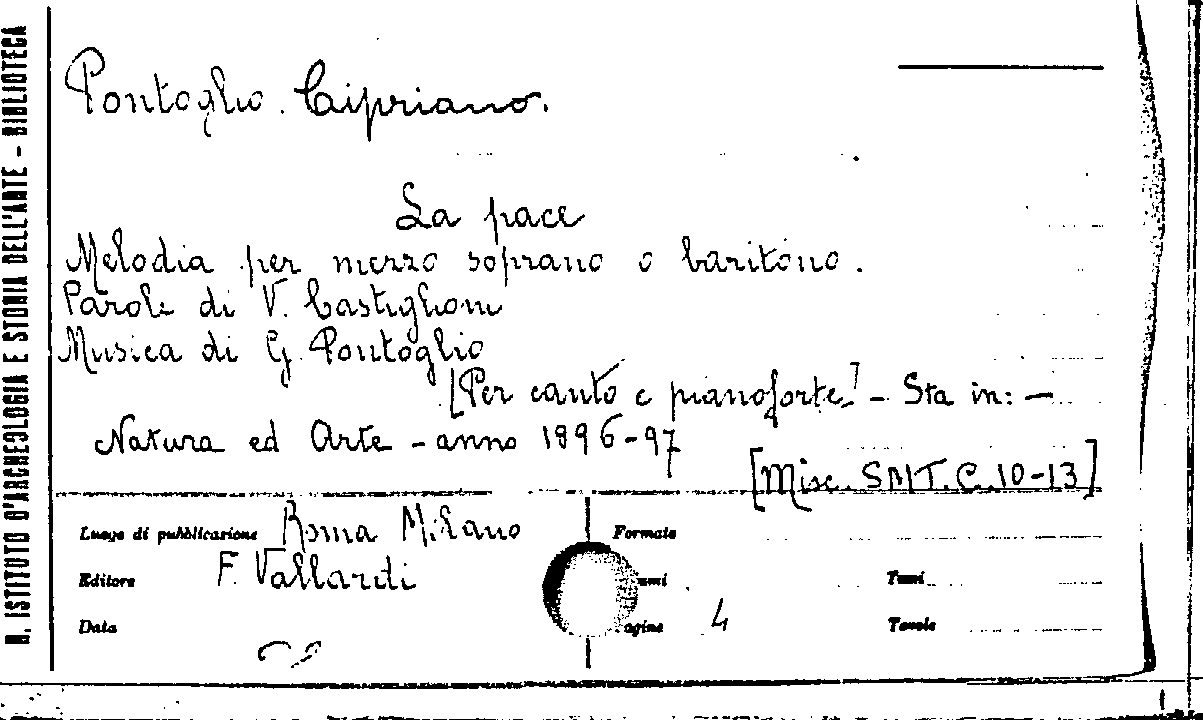 R. ISTITUTO D'ARCHEOLOGIA E STORIA DELL'ARTE - BIBLIOTECA
Pontoglio. Cipriano.
La pace
Melodia per mezzo soprano o baritono.
Parole di V. Castiglioni
Musica di G. Pontoglio
[Per canto e pianoforte] - Sta in: -
Natura ed Arte - anno 1896-97
[Misc. SMT. C. 10-13]
Luogo di pubblicazione Roma Milano Formato
Editore F. Vallardi umi Tomi
Data agine 4 Tavole